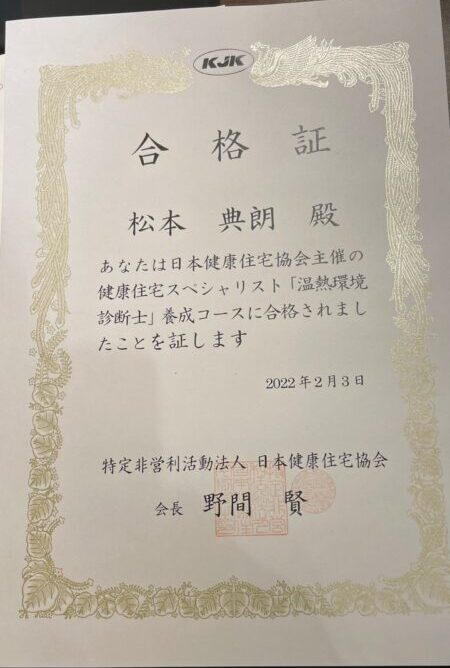 KJK
合格証
松本 典朗 殿
あなたは日本健康住宅協会主催の
健康住宅スペシャリスト「温熱環境
診断士」養成コースに合格されまし
たことを証します
2022年2月3日
特定非営利活動法人 日本健康住宅協会
会長 野間 賢